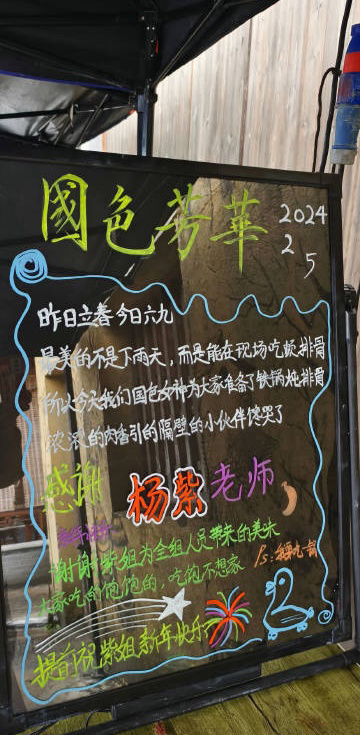 國色芳華
2024
2
5
昨日立春今日六九
最美的不是下雨天，而是能在现场吃顿排骨
所以今天我们国色女神为大家准备了铁锅炖排骨
浓浓的肉香引的隔壁的小伙伴馋哭了
感谢 杨紫 老师
谢谢紫姐为全组人员带来的美味
大家吃的饱饱的，吃的不想家
提前祝紫姐新年快乐